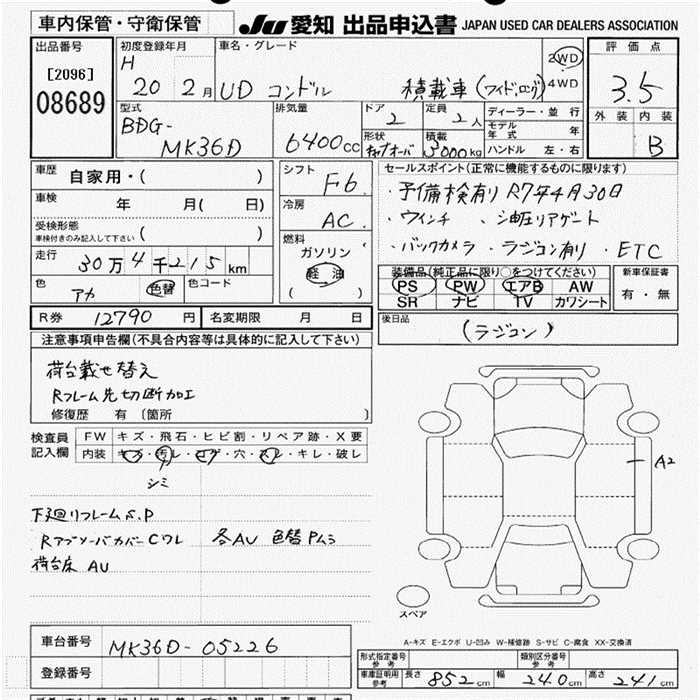 車内保管・守衛保管
JU 愛知 出品申込書 JAPAN USED CAR DEALERS ASSOCIATION
出品番号
[2096]
08689
初度登録年月
H
20 2月
車名・グレード
UD コンドル 積載車(ワイド,ロング)
2WD
4WD
評価点
3.5
外装 内装
B
型式
BDG-
MK36D
排気量
6400cc
ドア
2
定員
2人
形状
キャブオーバ
積載
3000kg
ディーラー・並行
モデル年式 年
ハンドル 左・右
車歴
自家用・( )
車検
年 月( 日)
受検形態
車検付きのみ記入して下さい( )
走行
30万4千215km
色
アカ
色替
色コード
シフト
F6
冷房
AC
燃料
ガソリン
軽油
( )
セールスポイント(正常に機能するものに限ります)
・予備検有り R7年4月30日
・ウインチ ・油圧リアゲート
・バックカメラ ・ラジコン有り ・ETC
装備品(純正品に限り○をつけてください)
PS PW エアB AW
SR ナビ TV カワシート
新車保証書
有・無
R券 12790円
名変期限 月 日
後日品
(ラジコン)
注意事項申告欄(不具合内容等は具体的に記入して下さい)
荷台載せ替え
Rフレーム先切断加工
修復歴 有 〔箇所 〕
検査員
記入欄
FW キズ・飛石・ヒビ割・リペア跡・X要
内装 キズ・汚レ・コゲ・穴・スレ・キレ・破レ
シミ
下廻リフレームS.P
RアブソーバカバーCワレ 各AU 色替Pムラ
荷台床 AU
A2
スペア
A-キズ E-エクボ U-凹み W-補修跡 S-サビ C-腐食 XX-交換済
車台番号
MK36D-05226
登録番号
形式指定番号
参考
類別区分番号
参考
車庫証明用
参考
長さ 852cm 幅 240cm 高さ 241cm